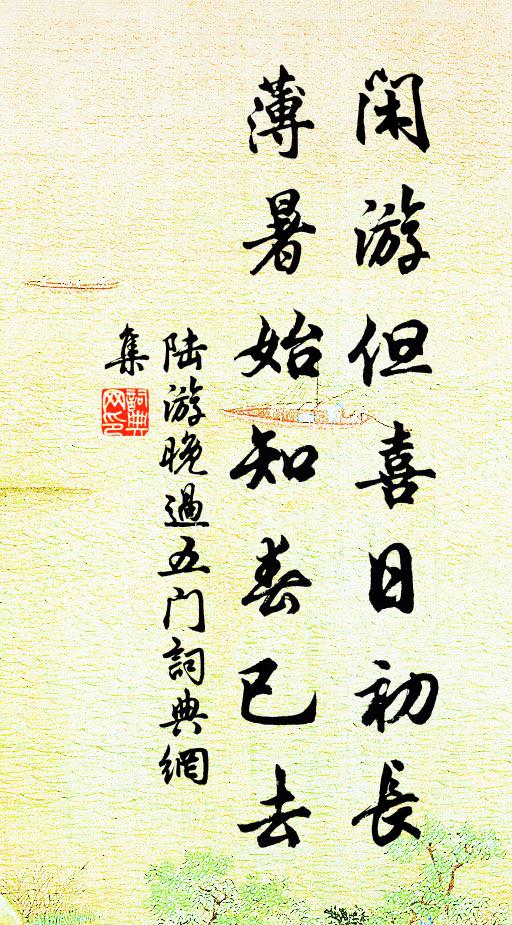 閑游但喜日初長
薄暑始知春已去
陆游晚過五门詞典網
集
詞典网印